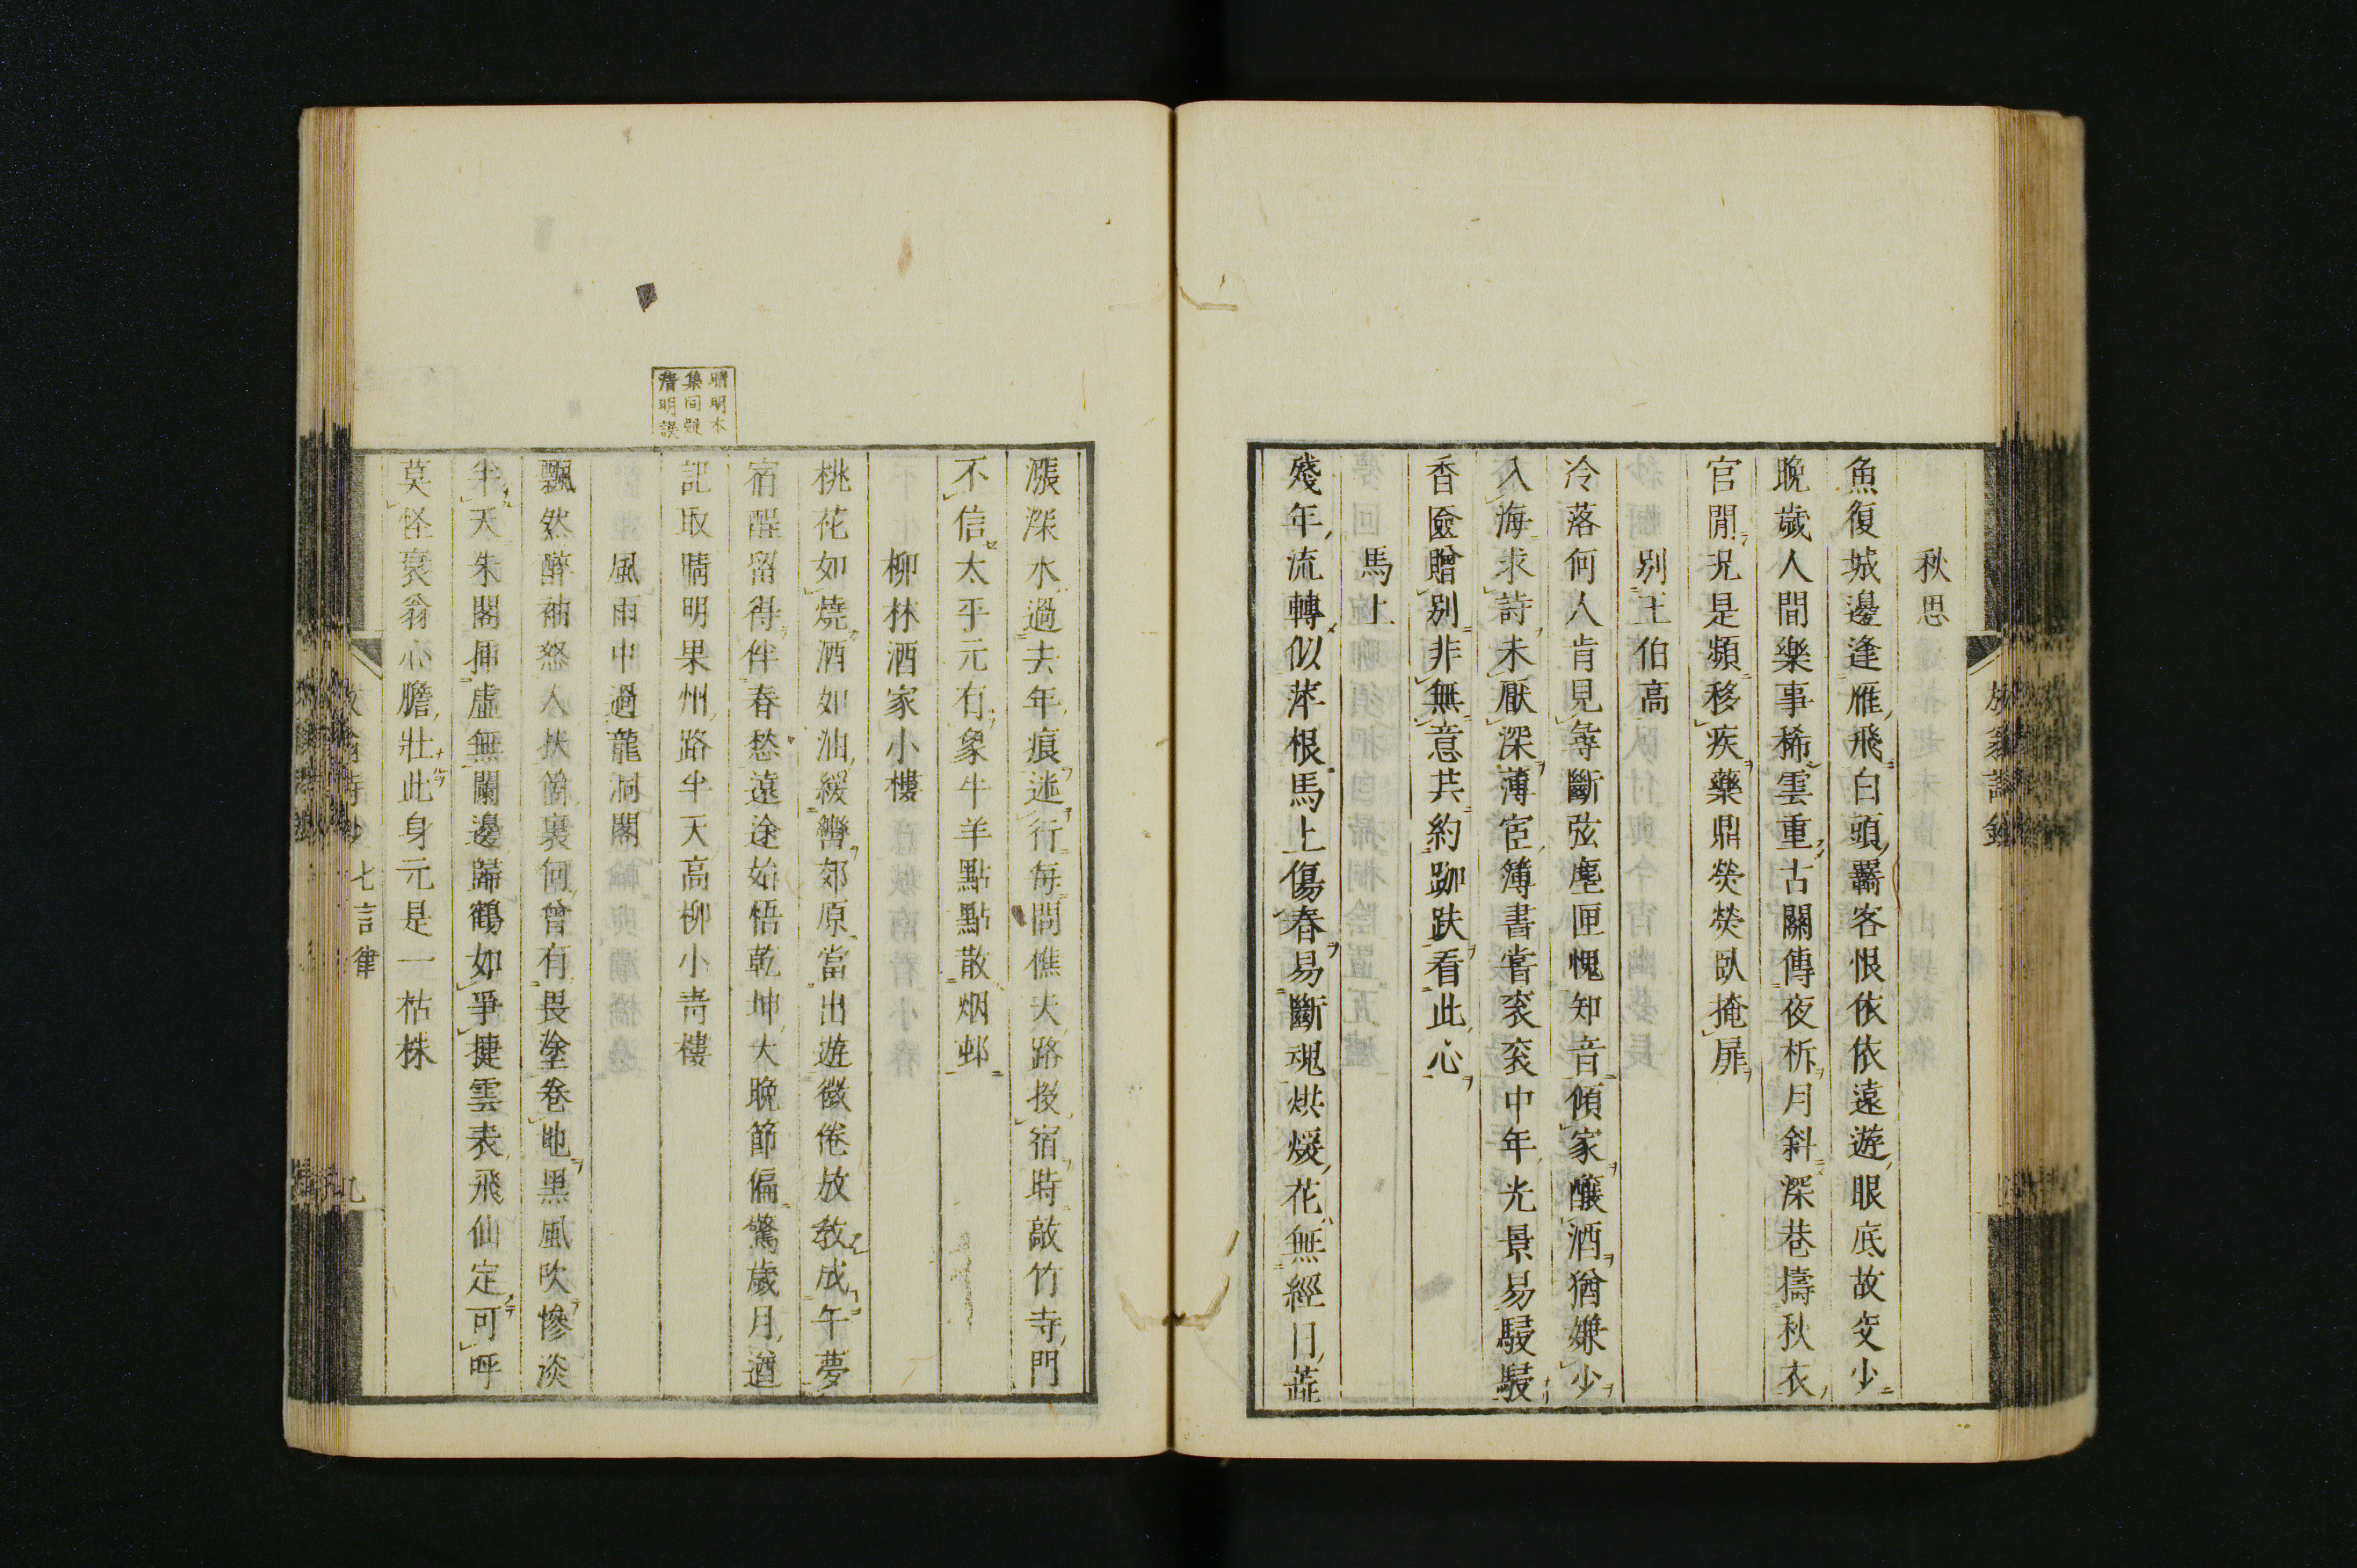 秋思
魚復城邊逢雁飛白頭羇客恨依依遠遊眼底故交少
晚歲人間樂事稀雲重古關傳夜柝月斜深巷擣秋衣
官閒況是頻移疾藥鼎熒熒臥掩扉
別王伯高
冷落何人肯見尋斷弦塵匣愧知音傾家釀酒猶嫌少
入海求詩未厭深薄宦簿書嘗袞袞中年光景易駸駸
香奩贈別非無意共約跏趺看此心
馬上
殘年流轉似萍根馬上傷春易斷魂烘煖花無經日蘂
漲深水過去年痕迷行每問樵夫路投宿時敲竹寺門
不信太平元有象牛羊點點散烟邨
柳林酒家小樓
桃花如燒酒如油緩轡郊原當出遊微倦放敎成午夢
宿酲留得伴春愁遠途始悟乾坤大晚節偏驚歲月遒
記取晴明果州路半天高柳小靑樓
晴明本
集同疑
淸明誤
風雨中過龍洞閣
飄然醉袖怒人扶箇裏何曾有畏塗卷地黑風吹慘淡
半天朱閣插虛無闌邊歸鶴如爭捷雲表飛仙定可呼
莫怪衰翁心膽壯此身元是一枯株
放翁詩鈔
七言律
九
放翁詩鈔